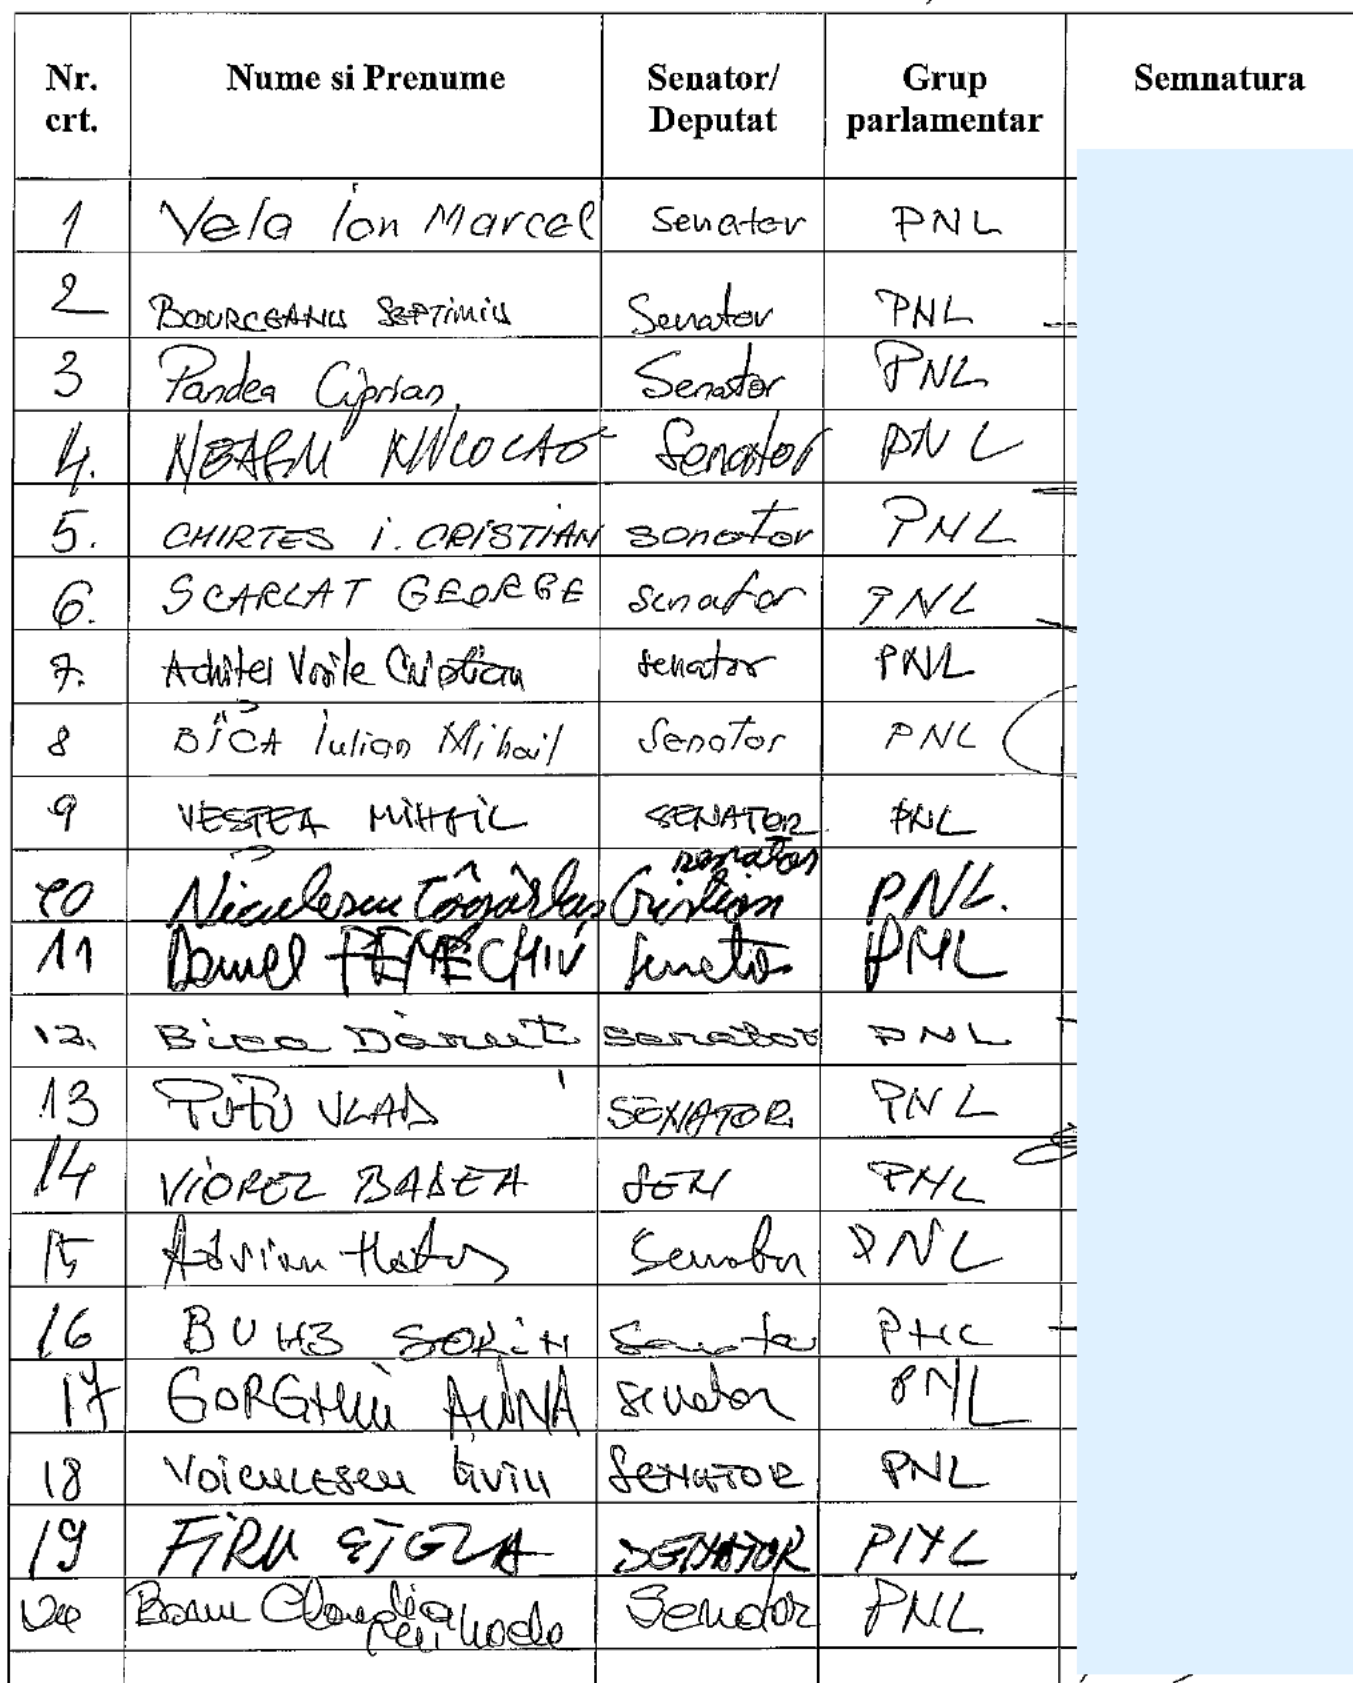 Nr. crt. Nume si Prenume Senator/ Deputat Grup parlamentar Semnatura
1 Vela Ion Marcel Senator PNL
2 BOURCEANU SEPTIMIU Senator PNL
3 Pandea Ciprian Senator PNL
4. NEAGU NICOLAE Senator PNL
5. CHIRTES I. CRISTIAN senator PNL
6. SCARLAT GEORGE senator PNL
7. Achitei Vasile Cristian senator PNL
8 BÎCA Iulian Mihail Senator PNL
9 VESTEA MIHAIL SENATOR PNL
10 Niculescu Țâgârlaș Cristian senator PNL.
11 Daniel FENECHIU Senator PNL
12. Bica Dănuț Senator PNL
13 PUFU VLAD SENATOR PNL
14 VIOREL BADEA SEN PNL
15 Adrian Hatos Senator PNL
16 SORIN Senator PNL
17 GORGHIU ALINA senator PNL
18 Voiculescu Liviu SENATOR PNL
19 FIRU SENATOR PNL
20 Claudia Senator PNL